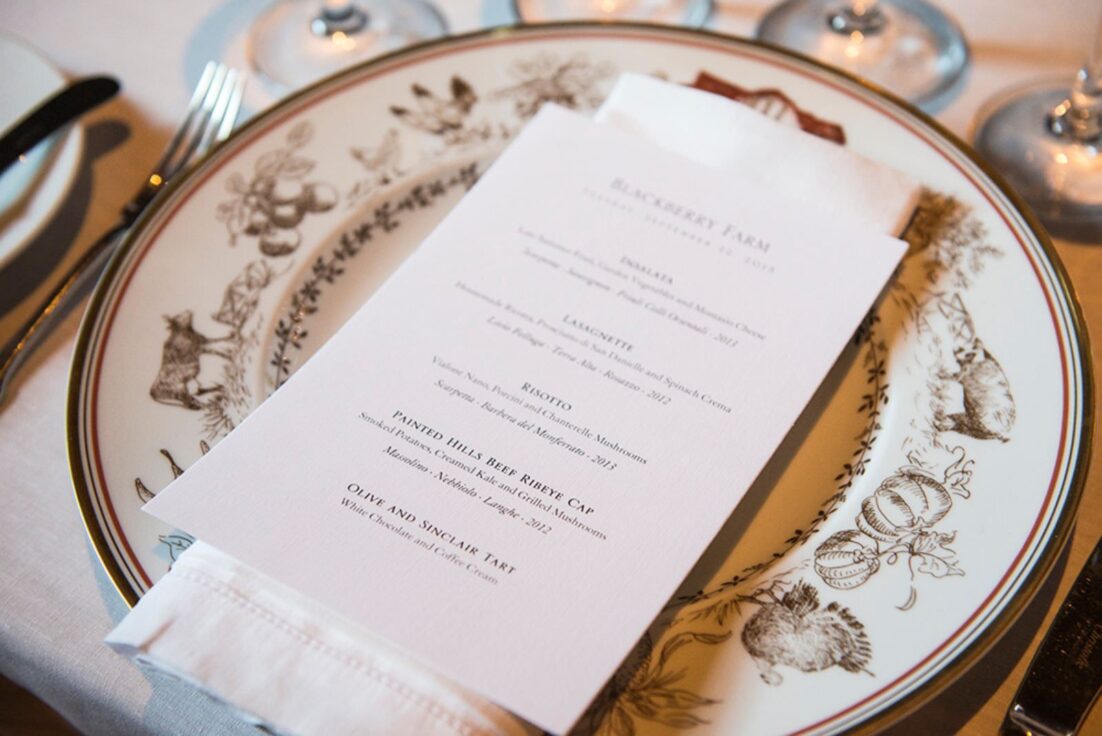 Blackberry Farm
Tuesday, September 22, 2015
Insalata
Late Summer Fruit, Garden Vegetables and Montasio Cheese
Scarpetta - Sauvignon - Friuli Colli Orientali - 2013
Lasagnette
Homemade Ricotta, Prosciutto di San Danielle and Spinach Crema
Livio Felluga - Terra Alta - Rosazzo - 2012
Risotto
Vialone Nano, Porcini and Chanterelle Mushrooms
Scarpetta - Barbera del Monferrato - 2013
Painted Hills Beef Ribeye Cap
Smoked Potatoes, Creamed Kale and Grilled Mushrooms
Massolino - Nebbiolo - Langhe - 2012
Olive and Sinclair Tart
White Chocolate and Coffee Cream